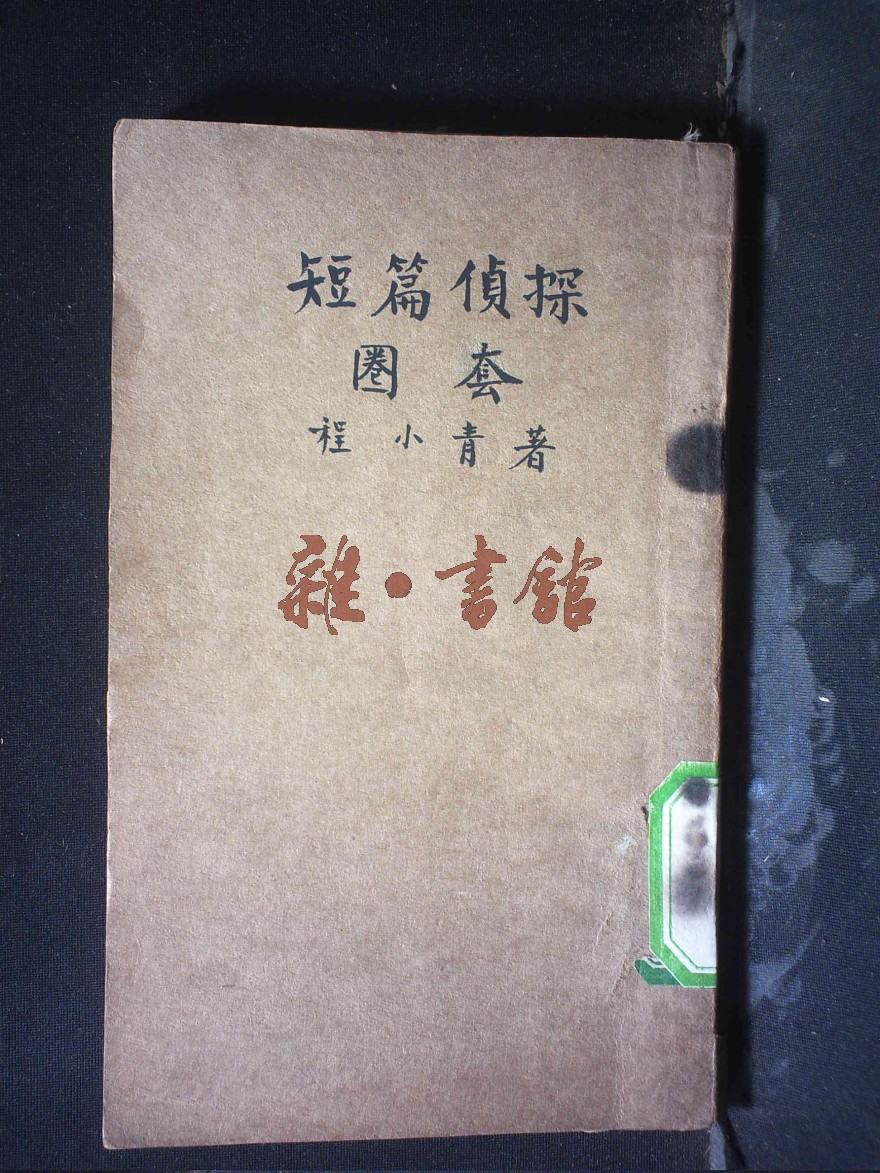 短篇偵探
圈套
程小青著
雜·書館